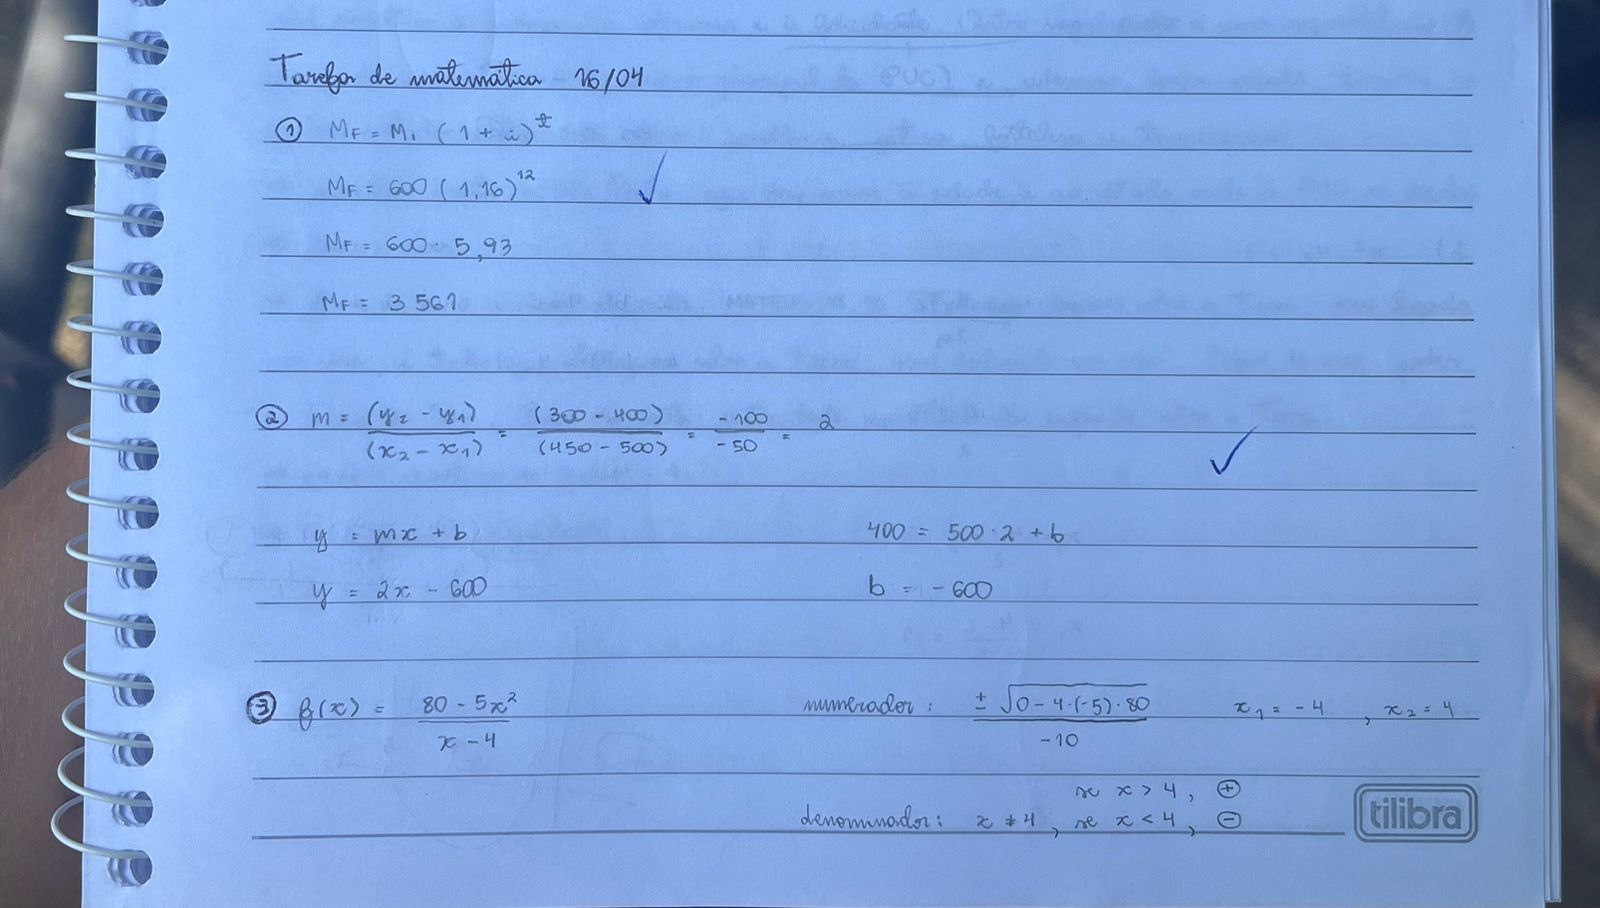 Tarefa de matemática 16/04
① MF = Mi (1 + i)^t
MF = 600 (1,16)^12
MF = 600 · 5,93
MF = 3 561
② m = (y2 - y1) / (x2 - x1) = (300 - 400) / (450 - 500) = -100 / -50 = 2
y = mx + b 400 = 500 · 2 + b
y = 2x - 600 b = -600
③ f(x) = 80 - 5x² / x - 4 numerador : ± √0 - 4·(-5)·80 / -10 x1 = -4 , x2 = 4
se x > 4, ⊕
denominador : x ≠ 4 , se x < 4, ⊖
tilibra